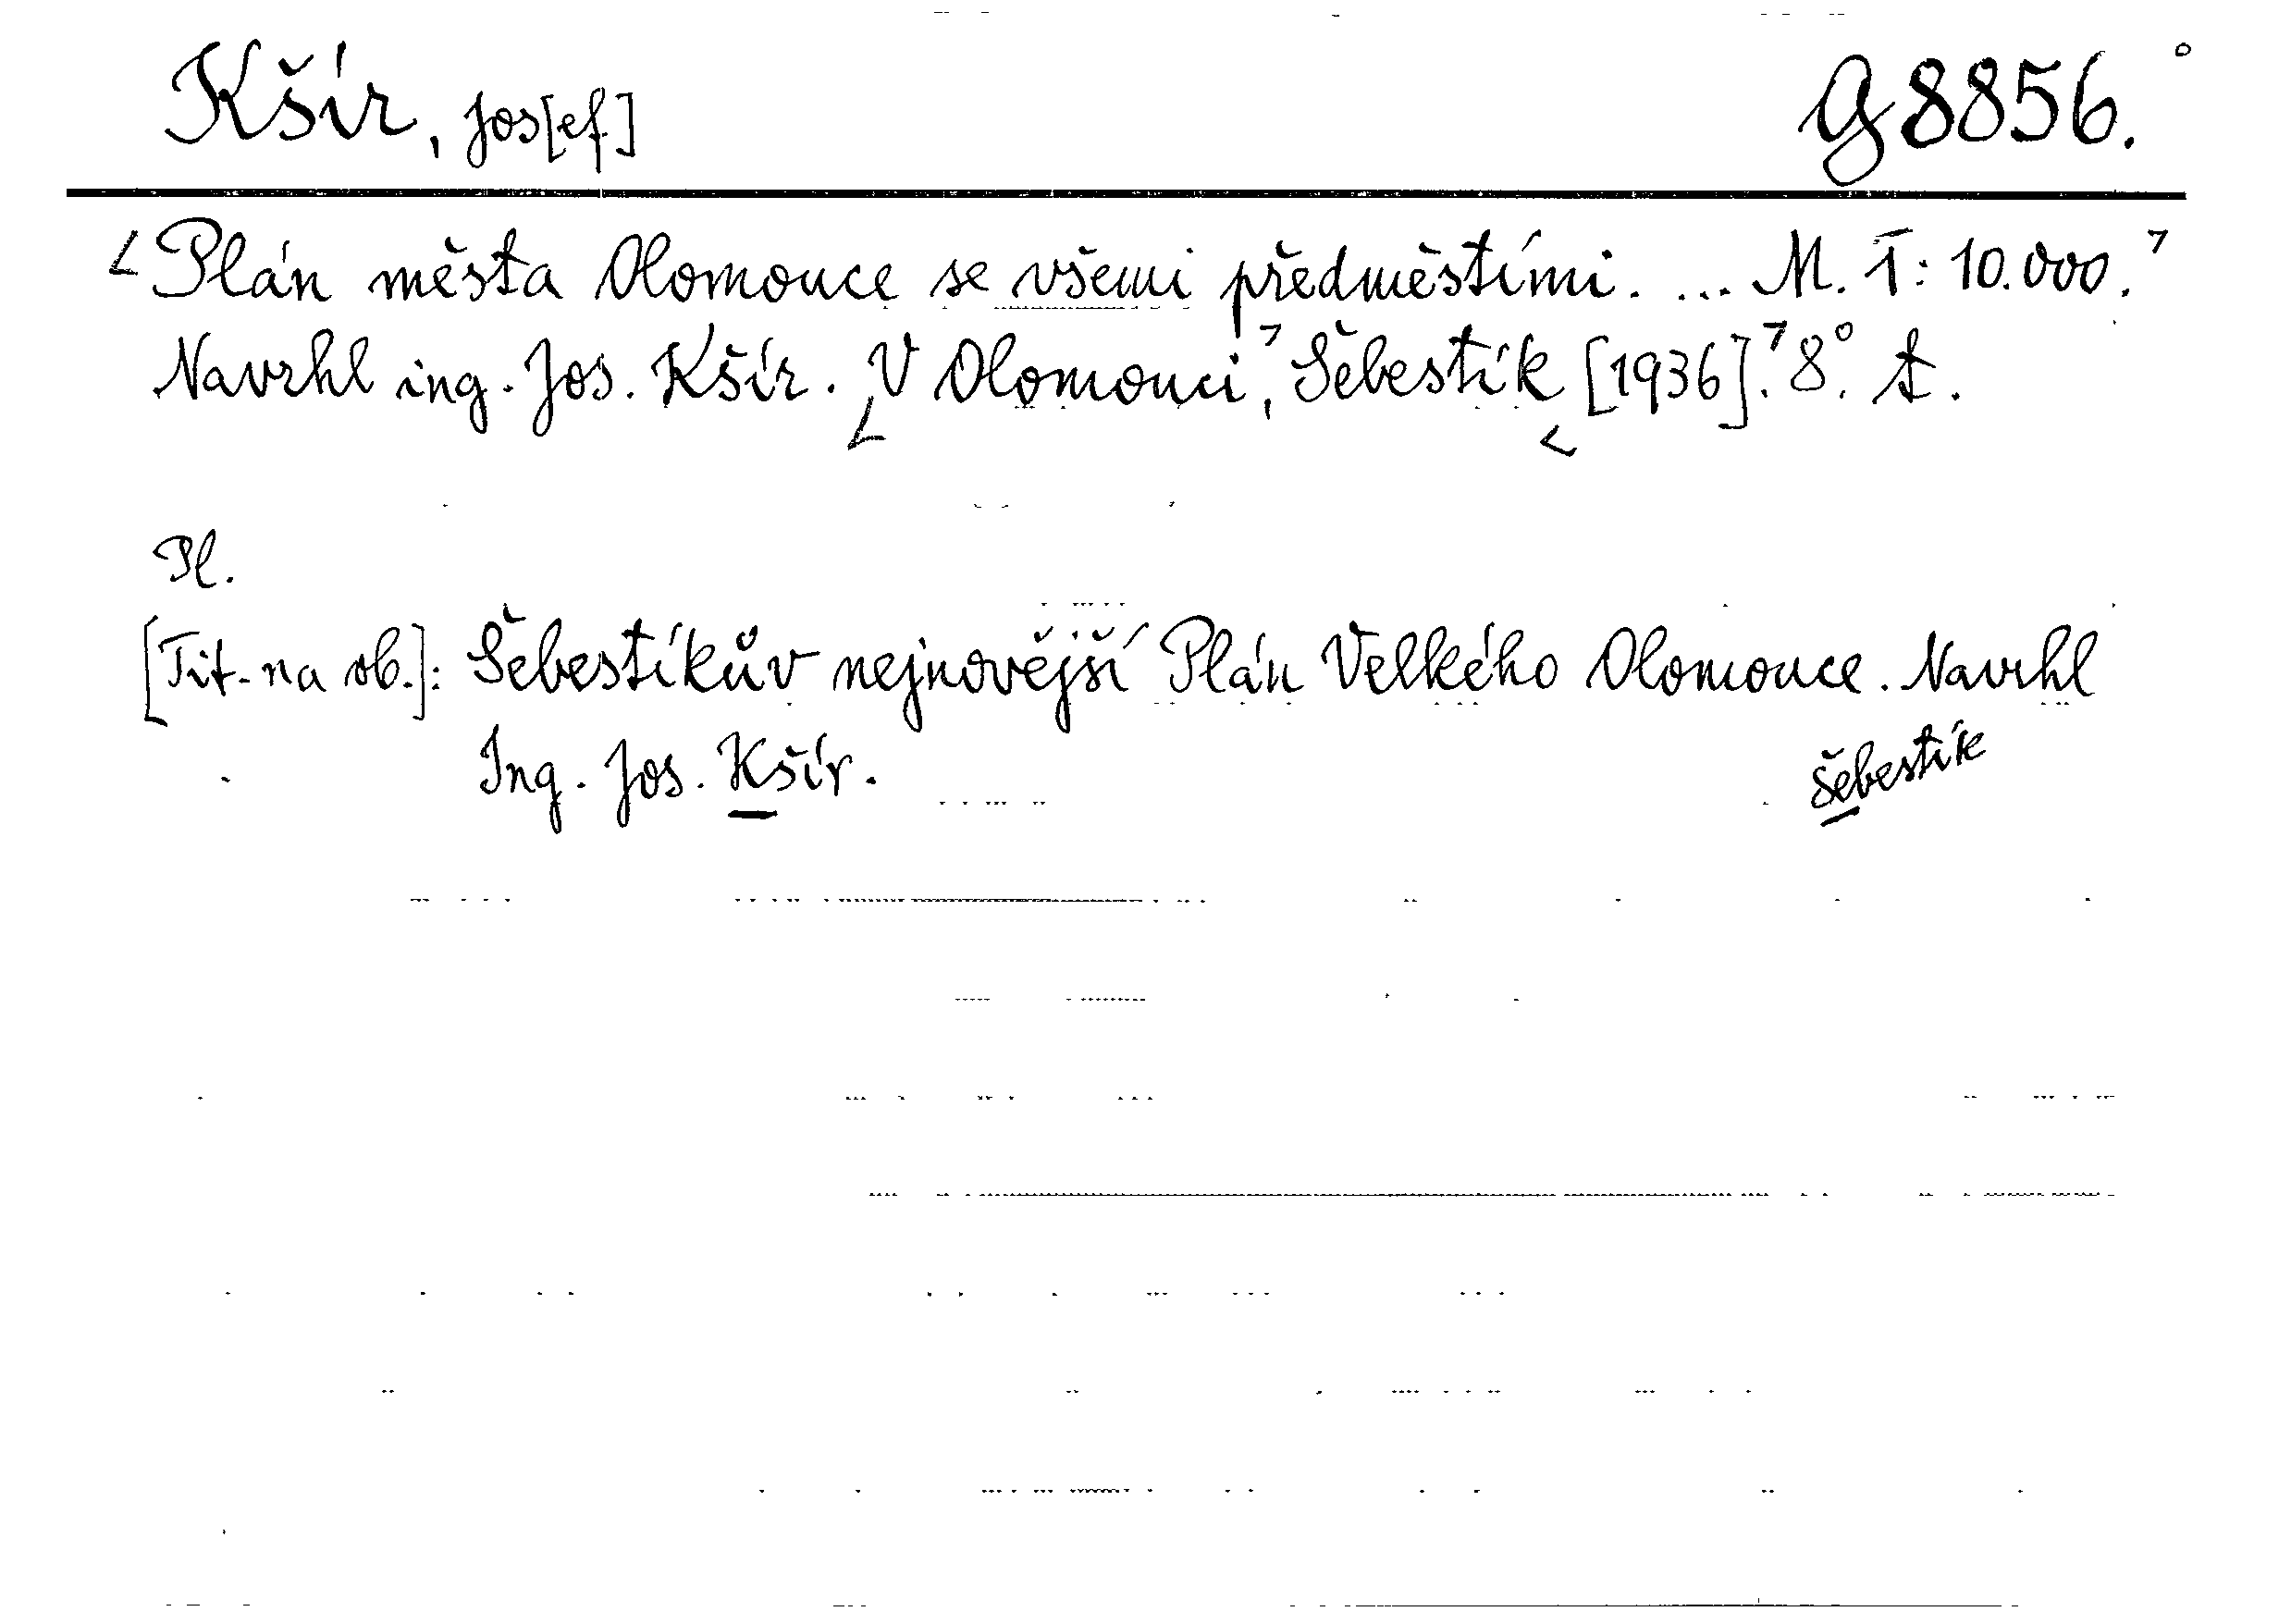 Kšír, Jos[ef] G 8856.°
Plán města Olomouce se všemi předměstími. ... M. 1:10.000.
Navrhl ing. Jos. Kšír. V Olomouci, Šebestík [1936]. 8°. A.
Pl.
[Tit. na ob.]: Šebestíkův nejnovější Plán Velkého Olomouce. Navrhl
Ing. Jos. Kšír.
Šebestík